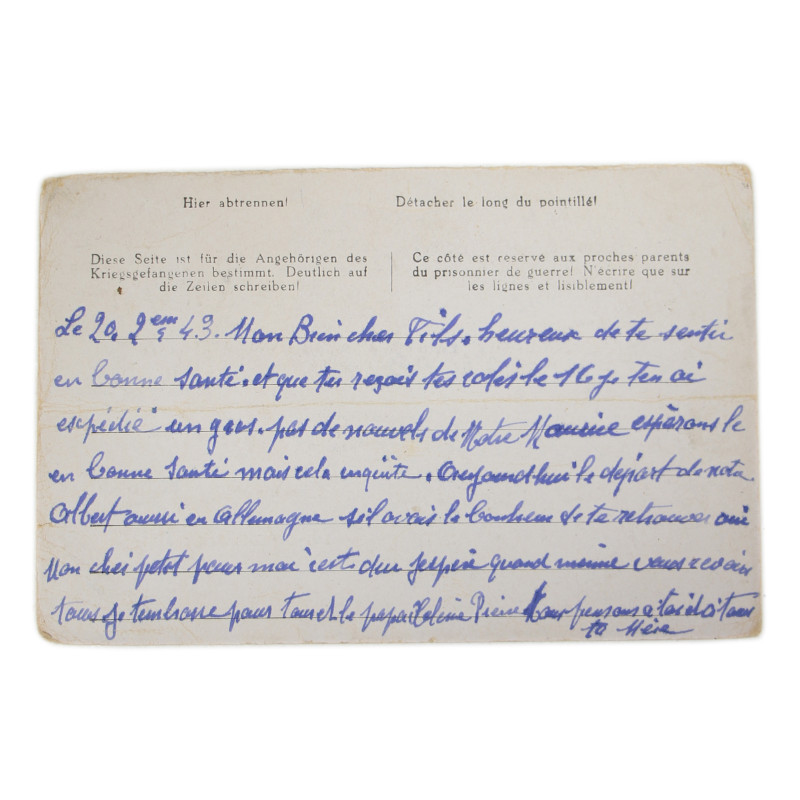 Hier abtrennen!
Détacher le long du pointillé!
Diese Seite ist für die Angehörigen des
Kriegsgefangenen bestimmt. Deutlich auf
die Zeilen schreiben!
Ce côté est reservé aux proches parents
du prisonnier de guerre! N'écrire que sur
les lignes et lisiblement!
Le 20. 2em 43. Mon Bien cher Fils. heureux de te sentir
en bonne santé. et que tu reçois tes colis le 16 je ten ai
expédié un gros. pas de nouvels de Notre Maurice espérons le
en bonne santé mais cela inquiète. Aujourdhui le départ de notre
Albert aussi en Allemagne sil avais le bonheur de te retrouver oui
Mon cher petit pour moi cest dur Jespère quand meme vous revoir
tous. je tembrasse pour tous et le papa Pierre Nous pensons à toi et à tous
ta Mère